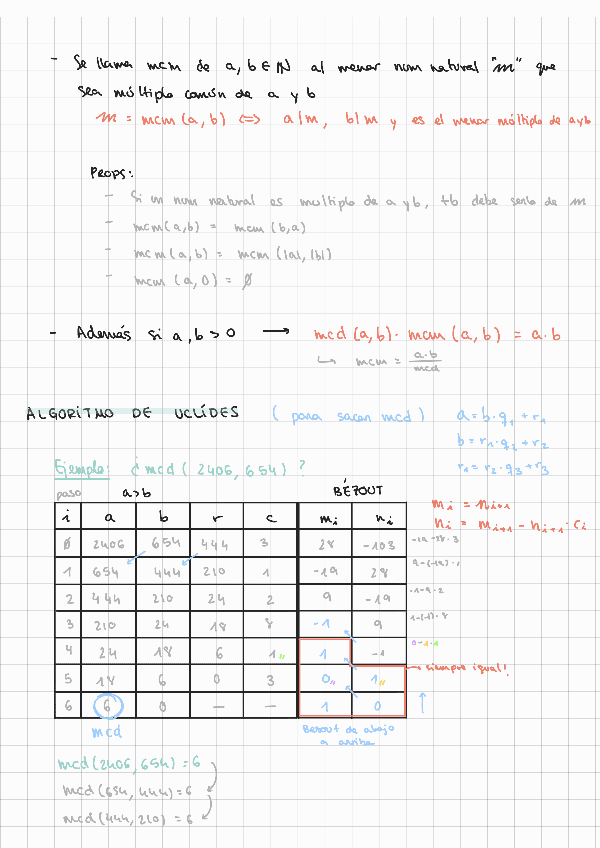 - Se llama mcm de a, b ∈ ℕ al menor num natural "m" que
sea múltiplo común de a y b
m = mcm (a, b) ⟺ a|m, b|m y es el menor múltiplo de a y b
Props:
- Si un num natural es multiplo de a y b, tb debe serlo de m
- mcm(a,b) = mcm (b,a)
- mcm(a,b) = mcm (|a|, |b|)
- mcm (a, 0) = ∅
- Además si a, b > 0 → mcd (a,b) · mcm (a, b) = a·b
↳ mcm = a·b / mcd
ALGORITMO DE UCLÍDES ( para sacar mcd ) a = b · q₁ + r₁
b = r₁ · q₂ + r₂
r₁ = r₂ · q₃ + r₃
Ejemplo: ¿ mcd ( 2406, 654 ) ?
paso a>b BÉZOUT
i a b r c mᵢ nᵢ
mᵢ = nᵢ₊₁
nᵢ = mᵢ₊₁ - nᵢ₊₁ · cᵢ
∅ 2406 654 444 3 28 -103 -19-28·3
1 654 444 210 1 -19 28 9-(-19)·1
2 444 210 24 2 9 -19 -1-9·2
3 210 24 18 8 -1 9 1-(-1)·8
4 24 18 6 1 1 -1 0-1·1
→ siempre igual!
5 18 6 0 3 0 1
6 6 0 — — 1 0 ↑
mcd Bezout de abajo
a arriba
mcd(2406, 654) = 6
mcd(654, 444) = 6
mcd(444, 210) = 6